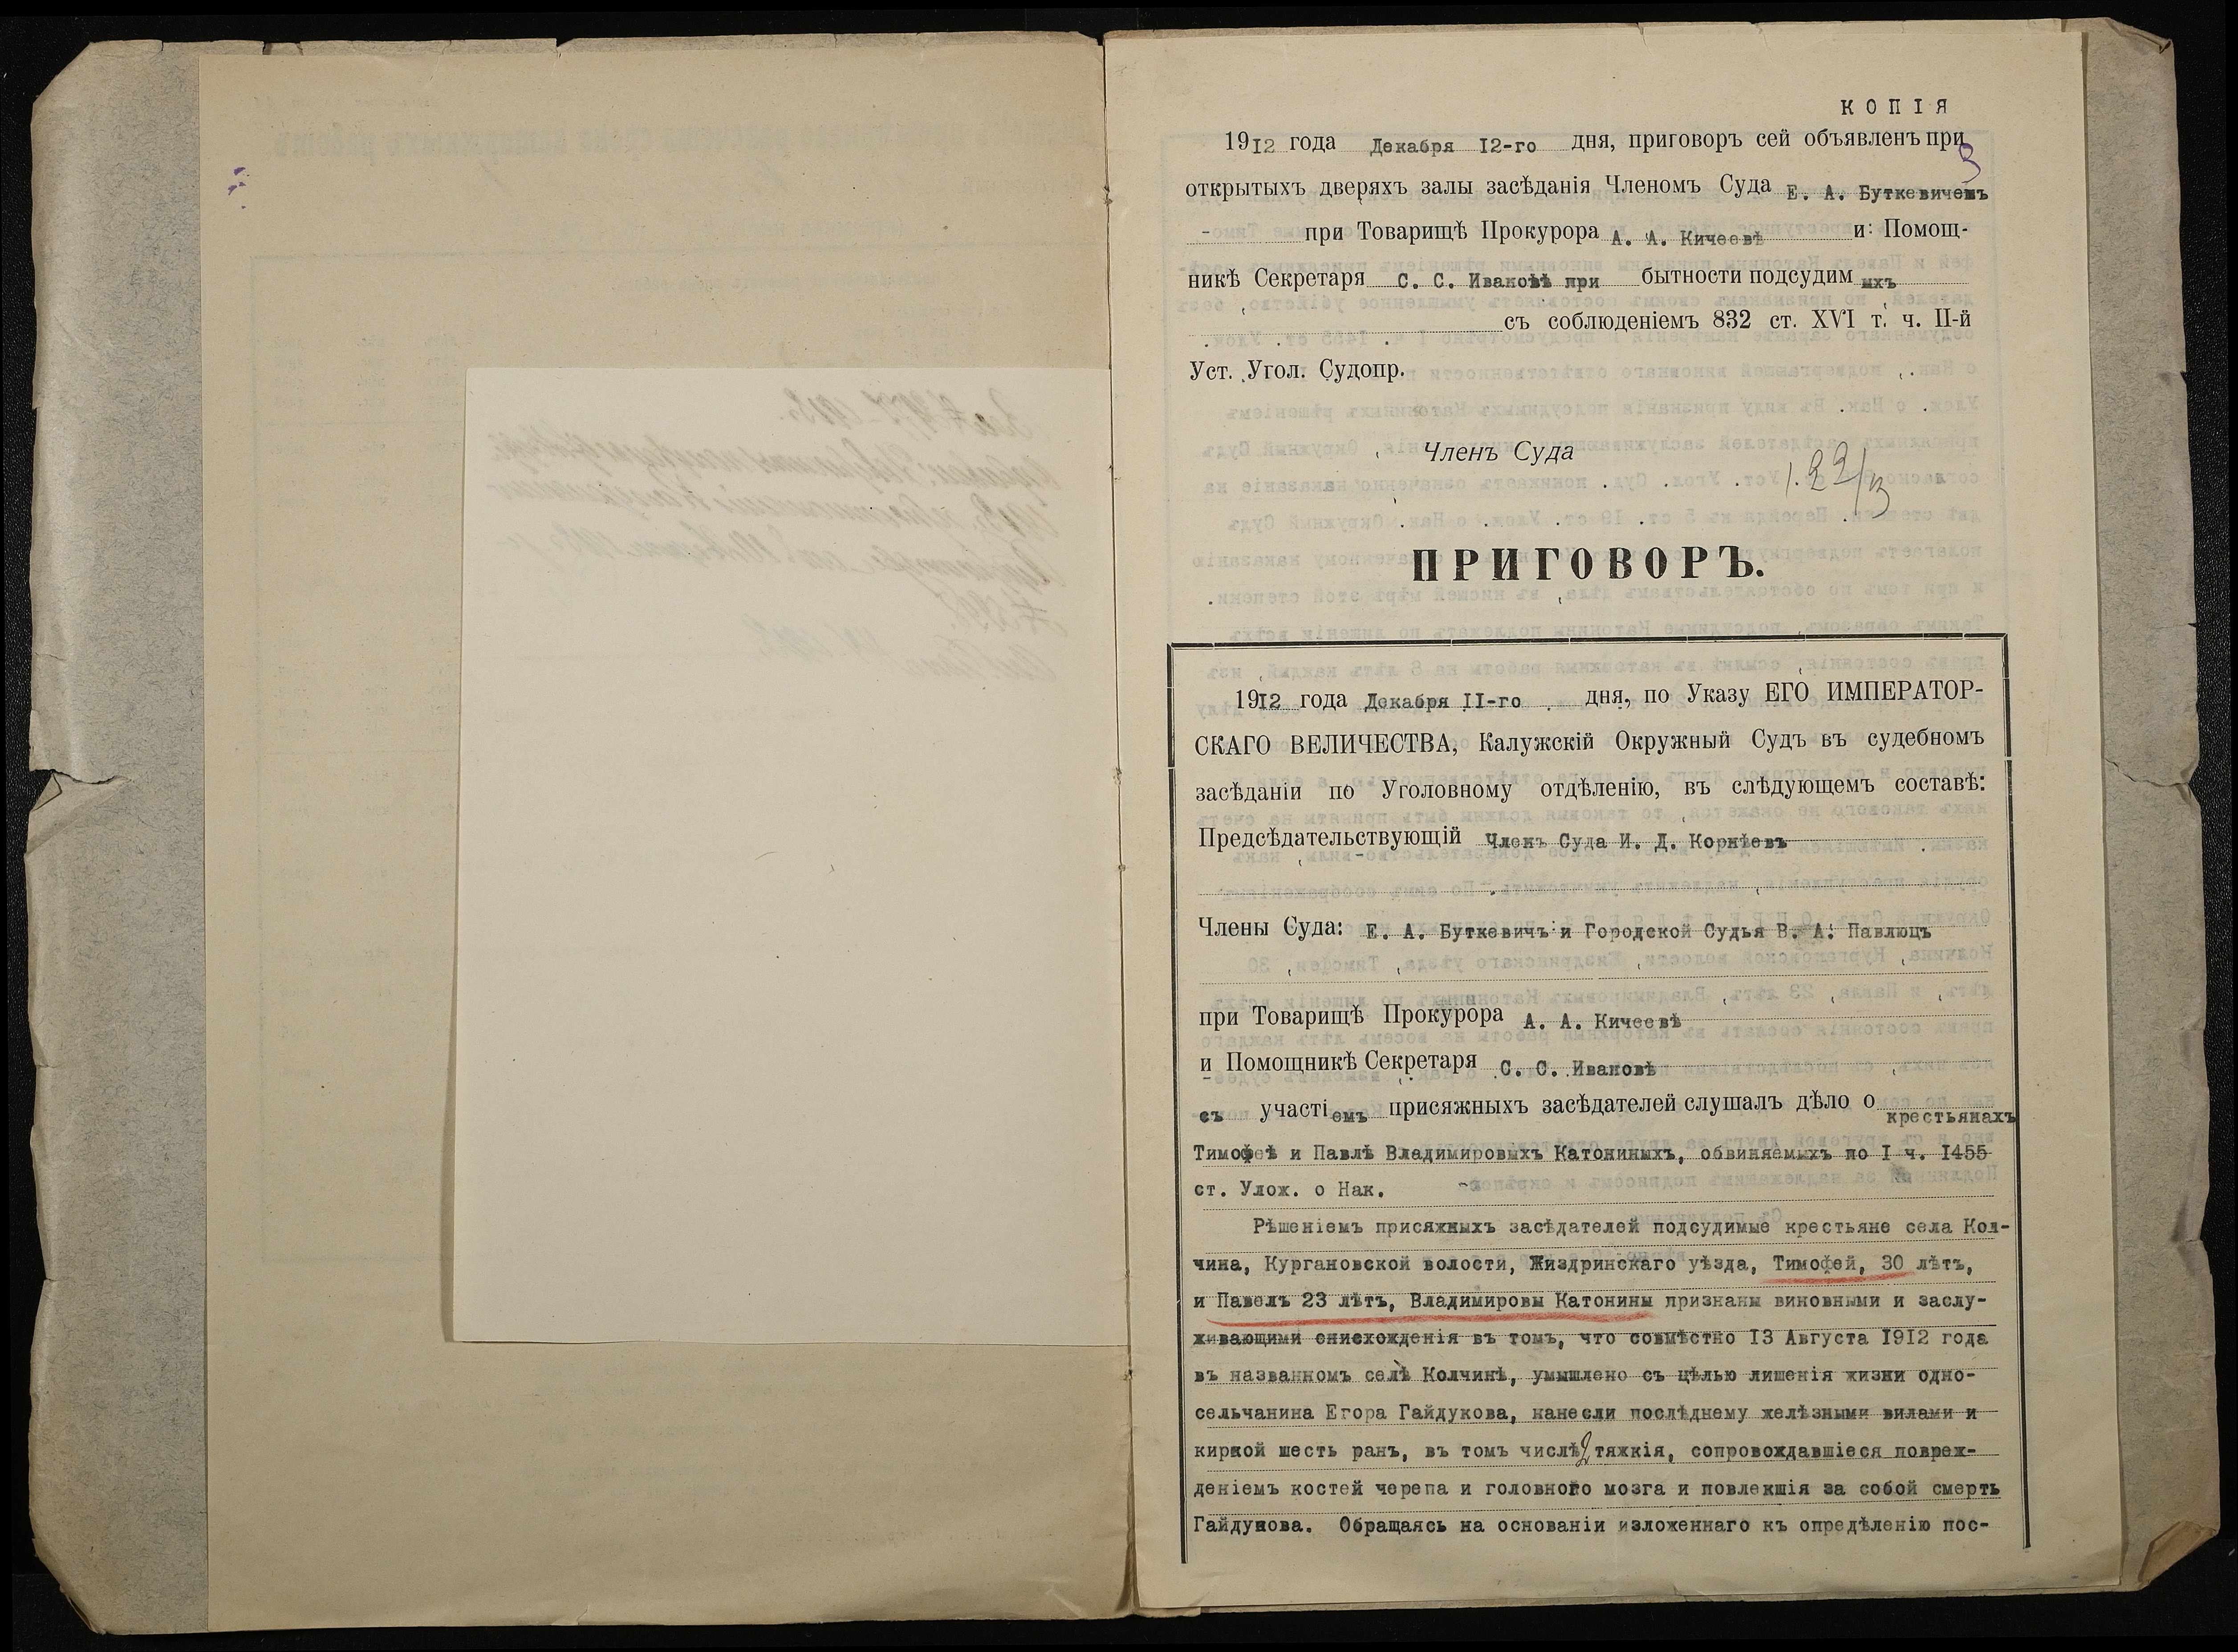 КОПІЯ
1912 года Декабря 12-го дня, приговоръ сей объявленъ при
3
открытыхъ дверяхъ залы засѣданія Членомъ Суда Е. А. Буткевичемъ
- при Товарищѣ Прокурора А. А. Кичеевѣ и Помощ-
никѣ Секретаря С. С. Ивановѣ при бытности подсудимыхъ
съ соблюденіемъ 832 ст. XVI т. ч. II-й
Уст. Угол. Судопр.
Членъ Суда
ПРИГОВОРЪ.
1912 года Декабря 11-го дня, по Указу ЕГО ИМПЕРАТОР-
СКАГО ВЕЛИЧЕСТВА, Калужскій Окружный Судъ въ судебномъ
засѣданіи по Уголовному отдѣленію, въ слѣдующемъ составѣ:
Предсѣдательствующій Членъ Суда И. Д. Корнѣевъ
Члены Суда: Е. А. Буткевичъ и Городской Судья В. А. Павлюцъ
при Товарищѣ Прокурора А. А. Кичеевѣ
и Помощникѣ Секретаря С. С. Ивановѣ
съ участіемъ присяжныхъ засѣдателей слушалъ дѣло о крестьянахъ
Тимофеѣ и Павлѣ Владимировыхъ Катониныхъ, обвиняемыхъ по I ч. 1455
ст. Улож. о Нак.
Рѣшеніемъ присяжныхъ засѣдателей подсудимые крестьяне села Кол-
чина, Кургановской волости, Жиздринскаго уѣзда, Тимофей, 30 лѣтъ,
и Павелъ 23 лѣтъ, Владимировы Катонины признаны виновными и заслу-
живающими снисхожденія въ томъ, что совмѣстно 13 Августа 1912 года
въ названномъ селѣ Колчинѣ, умышлено съ цѣлью лишенія жизни одно-
сельчанина Егора Гайдукова, нанесли послѣднему желѣзными вилами и
киркой шесть ранъ, въ томъ числѣ 2 тяжкія, сопровождавшіеся повреж-
деніемъ костей черепа и головного мозга и повлекшія за собой смерть
Гайдукова. Обращаясь на основаніи изложеннаго къ опредѣленію пос-